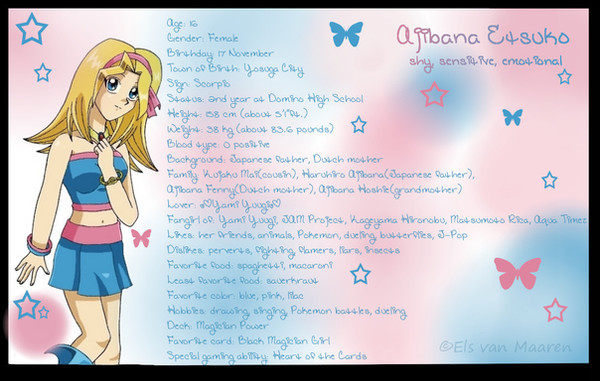 Ajibana Etsuko
shy, sensitive, emotional
Age: 16
Gender: Female
Birthday: 17 November
Town of Birth: Yosuga City
Sign: Scorpio
Status: 2nd year at Domino High School
Height: 158 cm (about 5'1"ft.)
Weight: 38 kg (about 83.6 pounds)
Blood type: O positive
Background: Japanese father, Dutch mother
Family: Kujaku Mai(cousin), Haruhiro Ajibana(Japanese father),
Ajibana Fenny(Dutch mother), Ajibana Hoshie(grandmother)
Lover: Yami Yuugi
Fangirl of: Yami Yuugi, JAM Project, Kageyama Hironobu, Matsumoto Rica, Aqua Timez
Likes: her friends, animals, Pokemon, dueling, butterflies, J-Pop
Dislikes: perverts, fighting, flamers, liars, insects
Favorite food: spaghetti, macaroni
Least favorite food: sauerkraut
Favorite color: blue, pink, lilac
Hobbies: drawing, singing, Pokemon battles, dueling
Deck: Magician Power
Favorite card: Black Magician Girl
Special gaming ability: Heart of the Cards
©Els van Maaren